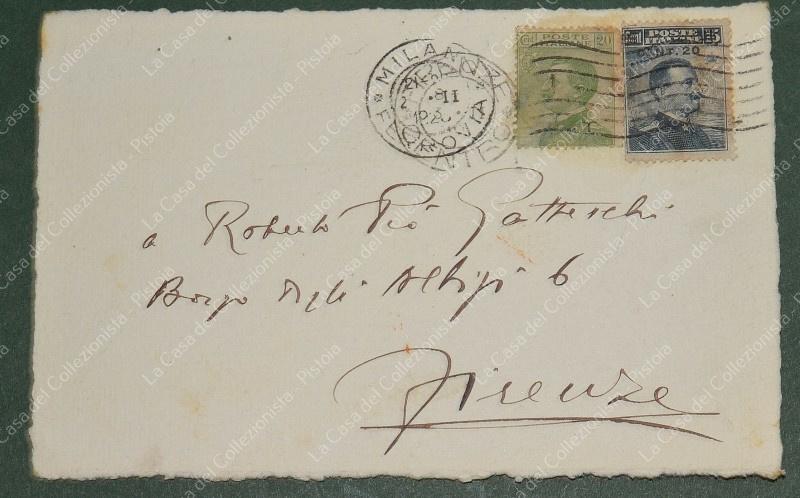 POSTE ITALIANE 20
POSTE ITALIANE 15
CENT. 20
MILANO
FERROVIA
II
a Roberto Pio Gatteschi
Borgo degli Albizi 6
Firenze
La Casa del Collezionista - Pistoia